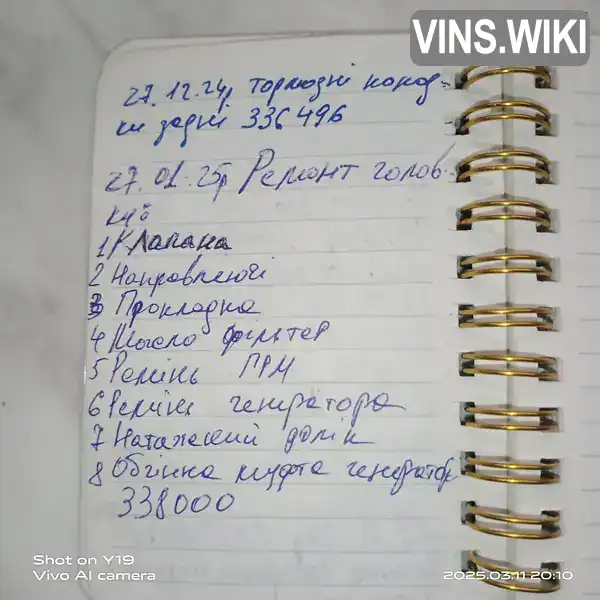 VINS.WIKI
27.12.24р тормозні колод-
ки задні 336496
27.01.25р Ремонт голов-
ки
1 Клапана
2 Направляючі
3 Прокладка
4 Масло фільтер
5 Ремінь ГРМ
6 Ремінь генератора
7 Натажний ролік
8 Обгінна муфта генератор
338000
Shot on Y19
Vivo AI camera
2025.03.11 20:10